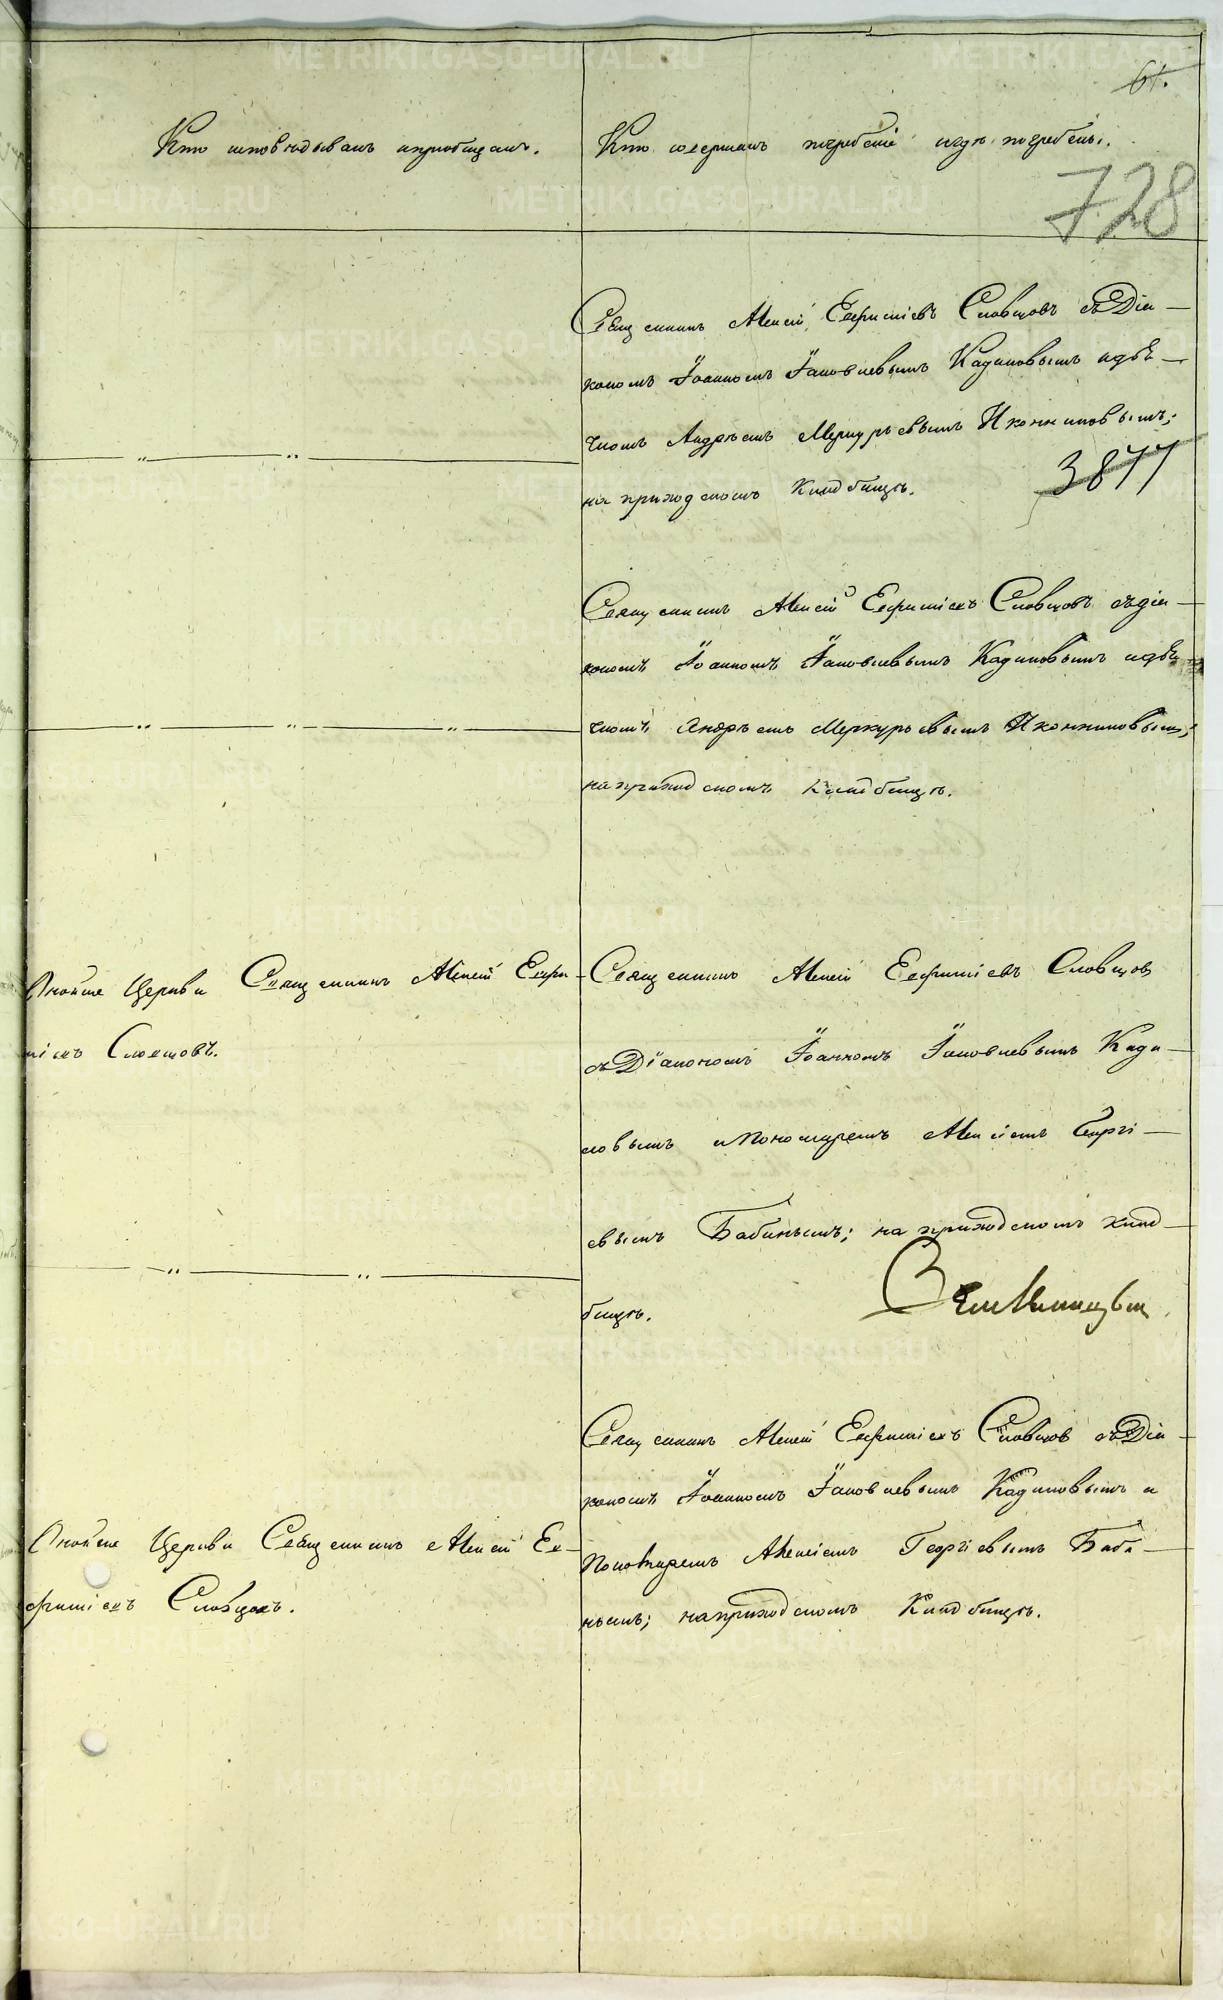 61.
Кто исповѣдывалъ и пріобщалъ.
Кто совершалъ погребеніе и гдѣ погребены.
728
Священникъ Алексій Евфиміевъ Словцовъ съ Діа—
кономъ Іоанномъ Іаковлевымъ Кадиковымъ и дья—
чкомъ Андреемъ Меркурьевымъ Иконниковымъ;
3877
на приходскомъ кладбищѣ.
Священникъ Алексій Евфиміевъ Словцовъ съ діа—
кономъ Іоанномъ Іаковлевымъ Кадиковымъ и дья—
чкомъ Андреемъ Меркурьевымъ Иконниковымъ;
на приходскомъ кладбищѣ.
Онойже Церкви Священникъ Алексій Евфи—
міевъ Словцовъ.
Священникъ Алексій Евфиміевъ Словцов
съ Діакономъ Іоанномъ Іаковлевымъ Кади—
ковымъ и Пономаремъ Алексіемъ Георгі—
евымъ Бабинымъ; на приходскомъ клад—
бищѣ.
Священникъ Алексій Евфиміевъ Словцов съ Діа—
кономъ Іоанномъ Іаковлевымъ Кадиковымъ и
Пономаремъ Алексіемъ Георгіевымъ Баби—
нымъ; на приходскомъ Кладбищѣ.
Онойже Церкви Священникъ Алексій Ев—
фиміевъ Словцовъ.
METRIKI.GASO-URAL.RU